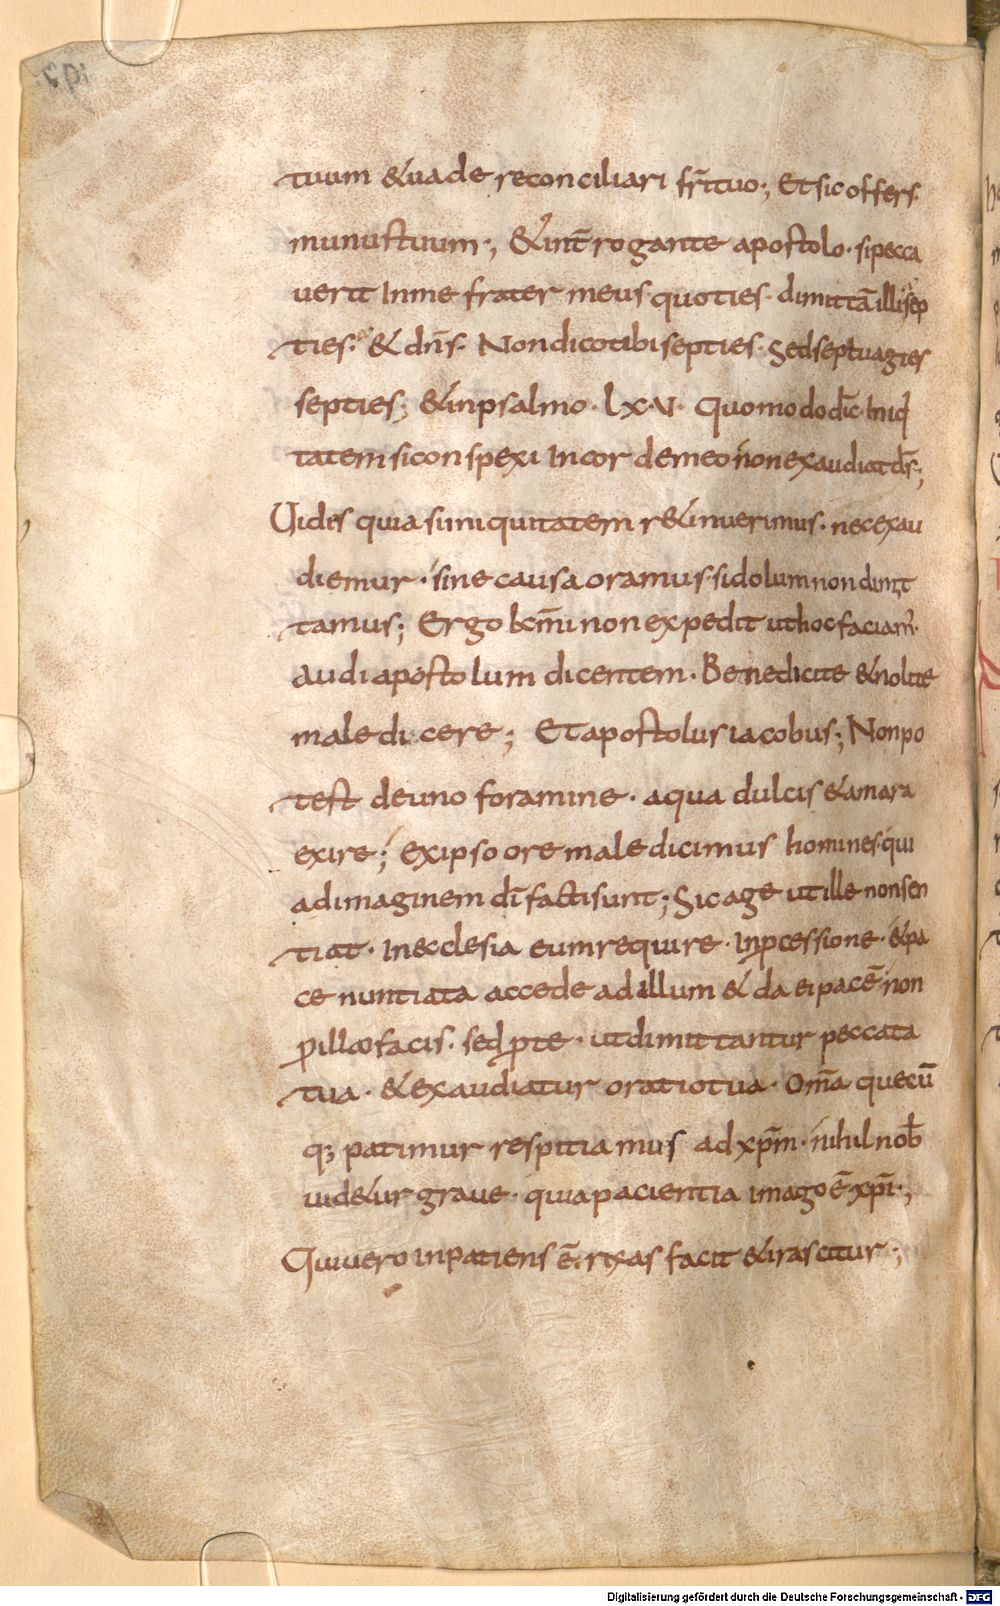 tuum &uade reconciliari fr̄ituo; Etsic offers
munustuum; &int̄rogante apostolo· sipecca
uerit Inme frater meus quoties· dimittā illi sep
ties· & dn̄s· Nondicotibisepties· Sedseptuagies
septies; &inpsalmo· lx·v· Quomododic̄ Iniq
tatem siconspexi Incordemeo nonexaudiat ds̄;
Uidis quia siiniquitatem r&inuerimus· necexau
diemur· sine causa oramus· sidolum non dimit
tamus; Ergo kr̄mi non expedit uthoc faciam̄·
audi apostolum dicentem· Benedicite &nolite
maledicere; Etapostolus iacobus; Nonpo
test deuno foramine· aqua dulcis &amara
exire; exipso ore maledicimus homines· qui
adimaginem dī factisunt; Sic age utille nonsen
tiat· Inecclesia eumrequire· Inꝓcessione· &pa
ce nuntiata accede adillum & da ei pacē· non
ꝑillo facis· sed ꝓte· utdimittantur peccata
tua· &exaudiatur oratiotua· Om̄a quecū
q; patimur respitiamus ad xp̄m· nihil nob̄
uid&ur graue· quiapacientia imago ē xp̄i·;
Quiuero inpatiens ē· rixas facit &irascitur·;
Digitalisierung gefördert durch die Deutsche Forschungsgemeinschaft - DFG